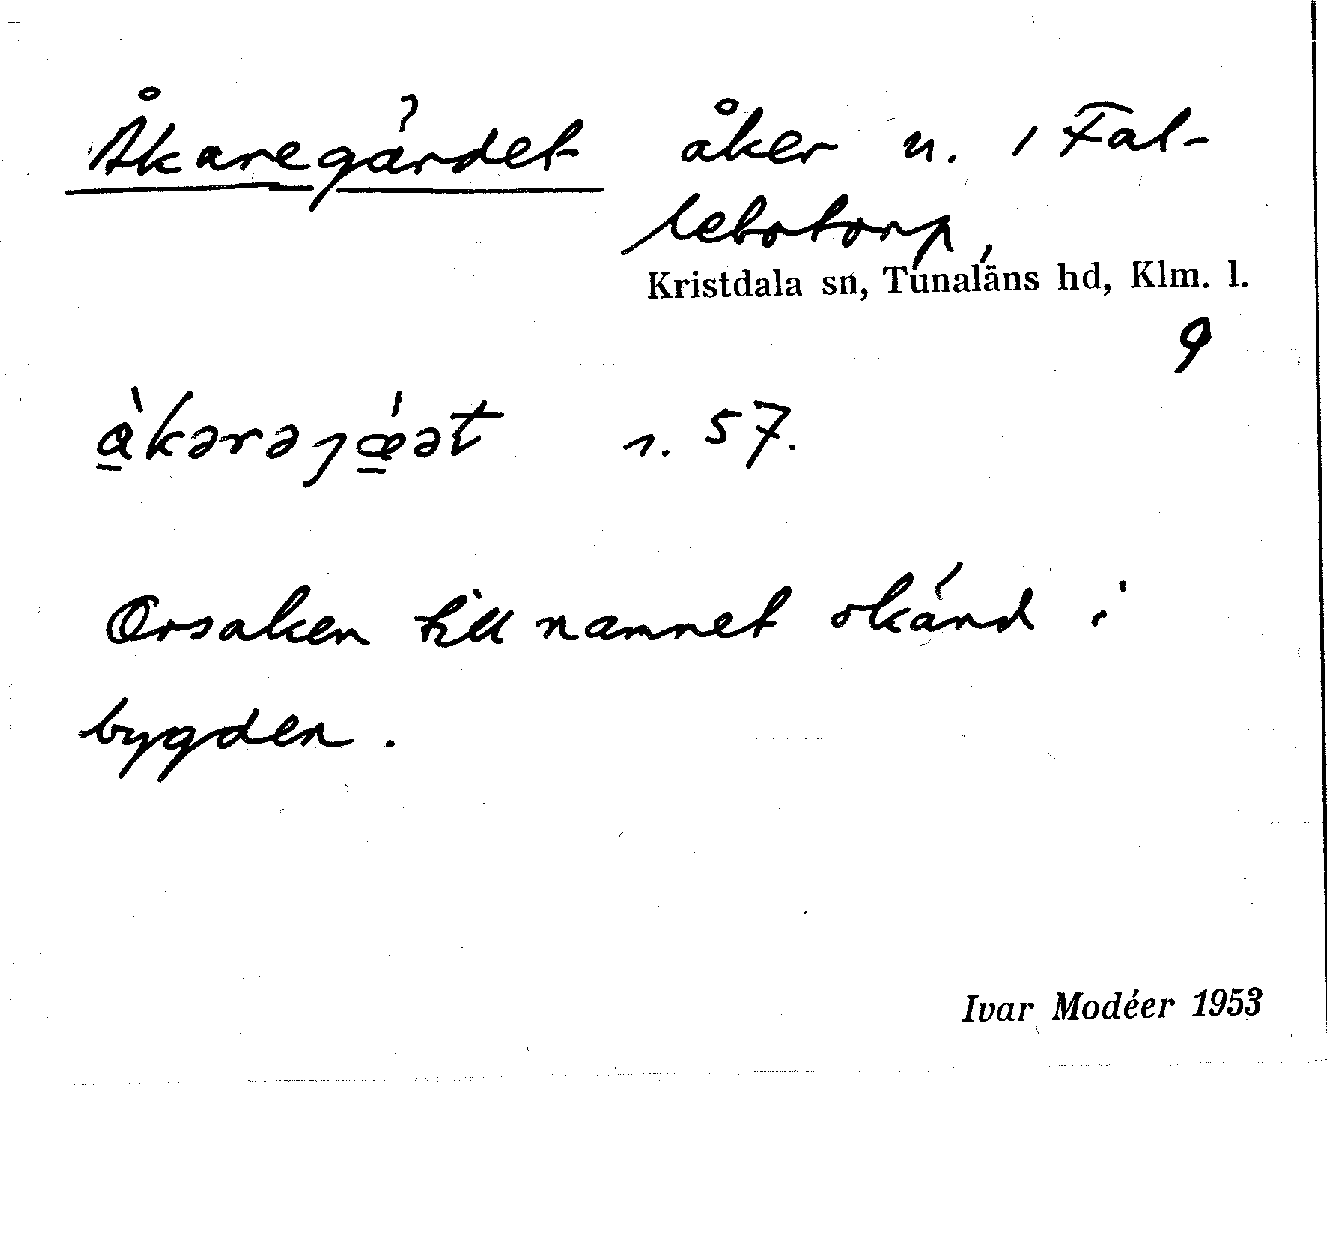 Åkaregärdet åker n. i Fal-
lebotorp,
Kristdala sn, Tunaläns hd, Klm. l.
9
àkarəȷǽət r. 57.
Orsaken till namnet okänd i
bygden.
Ivar Modéer 1953